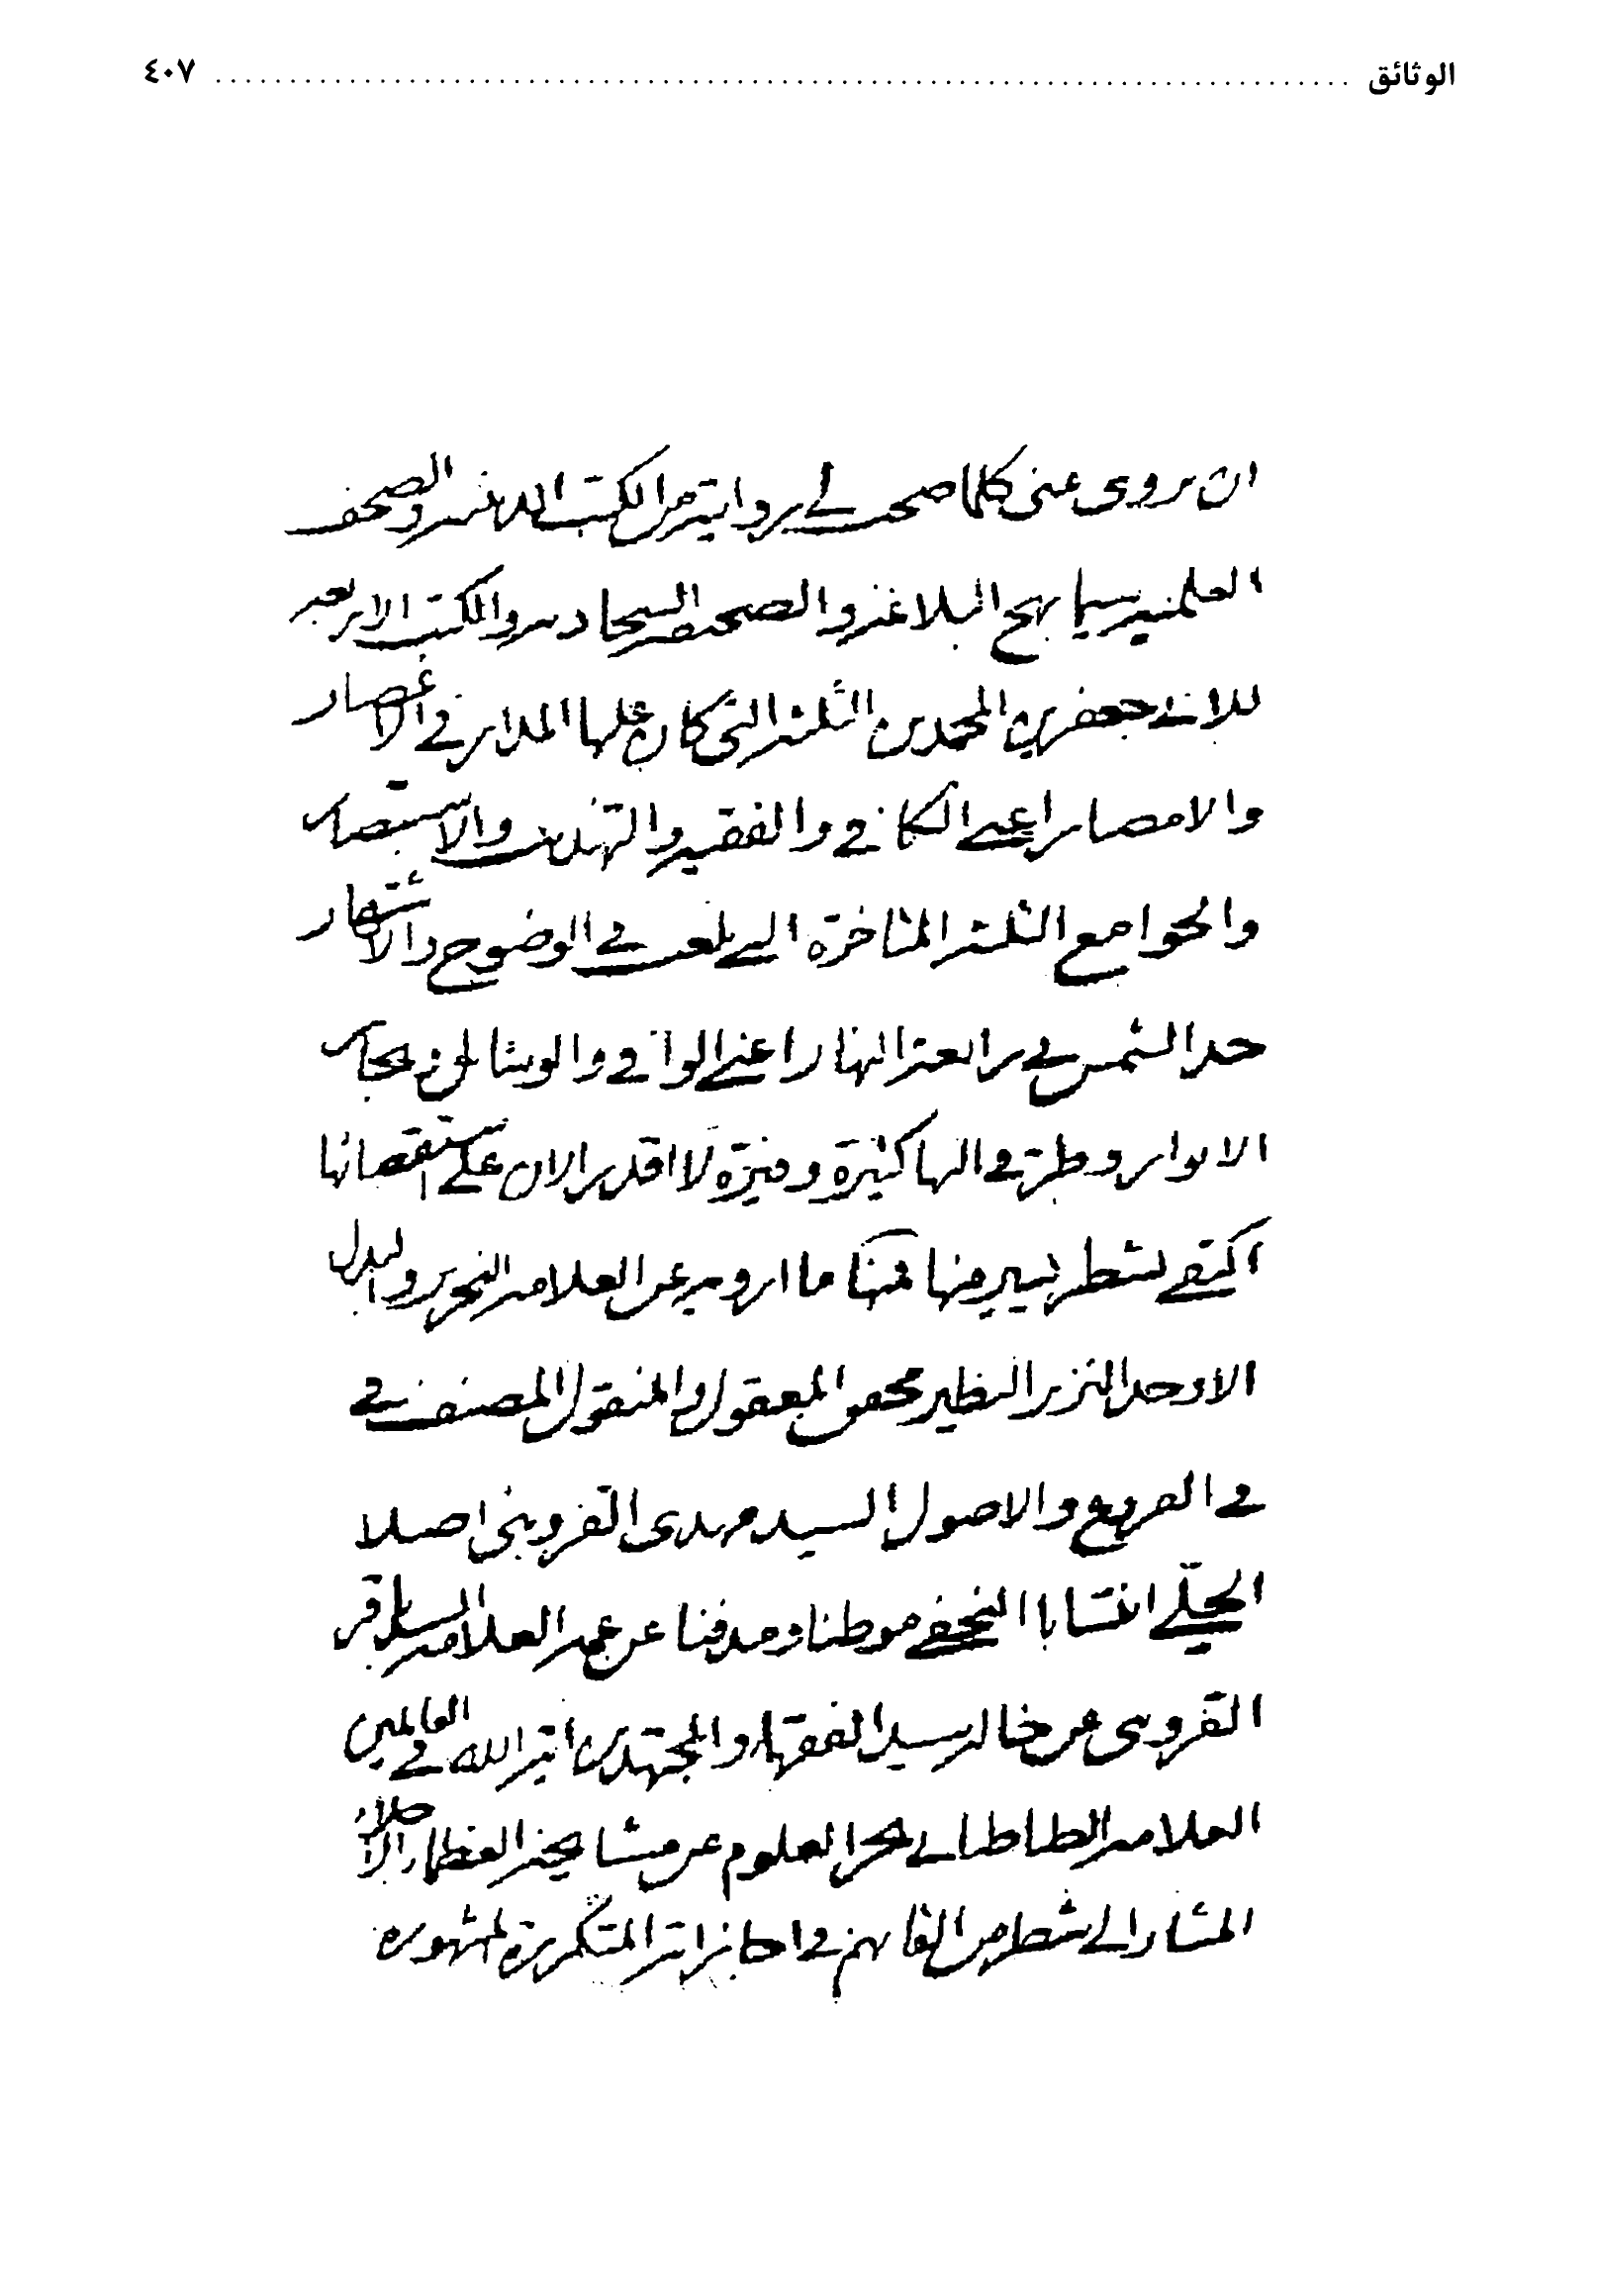 الوثائق ٤٠٧
ان يروى عنى كلما صحت لي روايته من الكتب الدينية والصحف
العلمية سيما نهج البلاغة والصحيفة السجادية والكتب الاربعة
للابي جعفرين المحمدين الثلثة التي كان عليها المدار في الاعصار
والامصار اعني الكافي والفقيه والتهذيب والاستبصار
والجوامع الثلثة المتاخرة التي بلغت في الوضوح والاشتهار
حد الشمس في رابعة النهار اعني الوافي والوسائل وبحار
الانوار وطرقي اليها كثيرة وفيرة لا اقدر الان على استقصائها
اكتفي بشطر يسير منها فمنها ما ارويه عن العلامة النحرير والبدل
الاوحد النزر النظير محقق المعقول والمنقول المصنف في
في الفروع والاصول السيد مهدى القزويني اصلا
الحلّي انتسابا النجفي موطنا ومدفنا عن عمه العلامة السيد باقر
القزويني عن خاله سيد الفقهاء والمجتهدين اية الله في العالمين
العلامة الطباطبائي بحر العلوم عن مشايخه العظماء الاجلاء
المشار الى شطر من القابهم في اجازاته المتكررة المشهورة